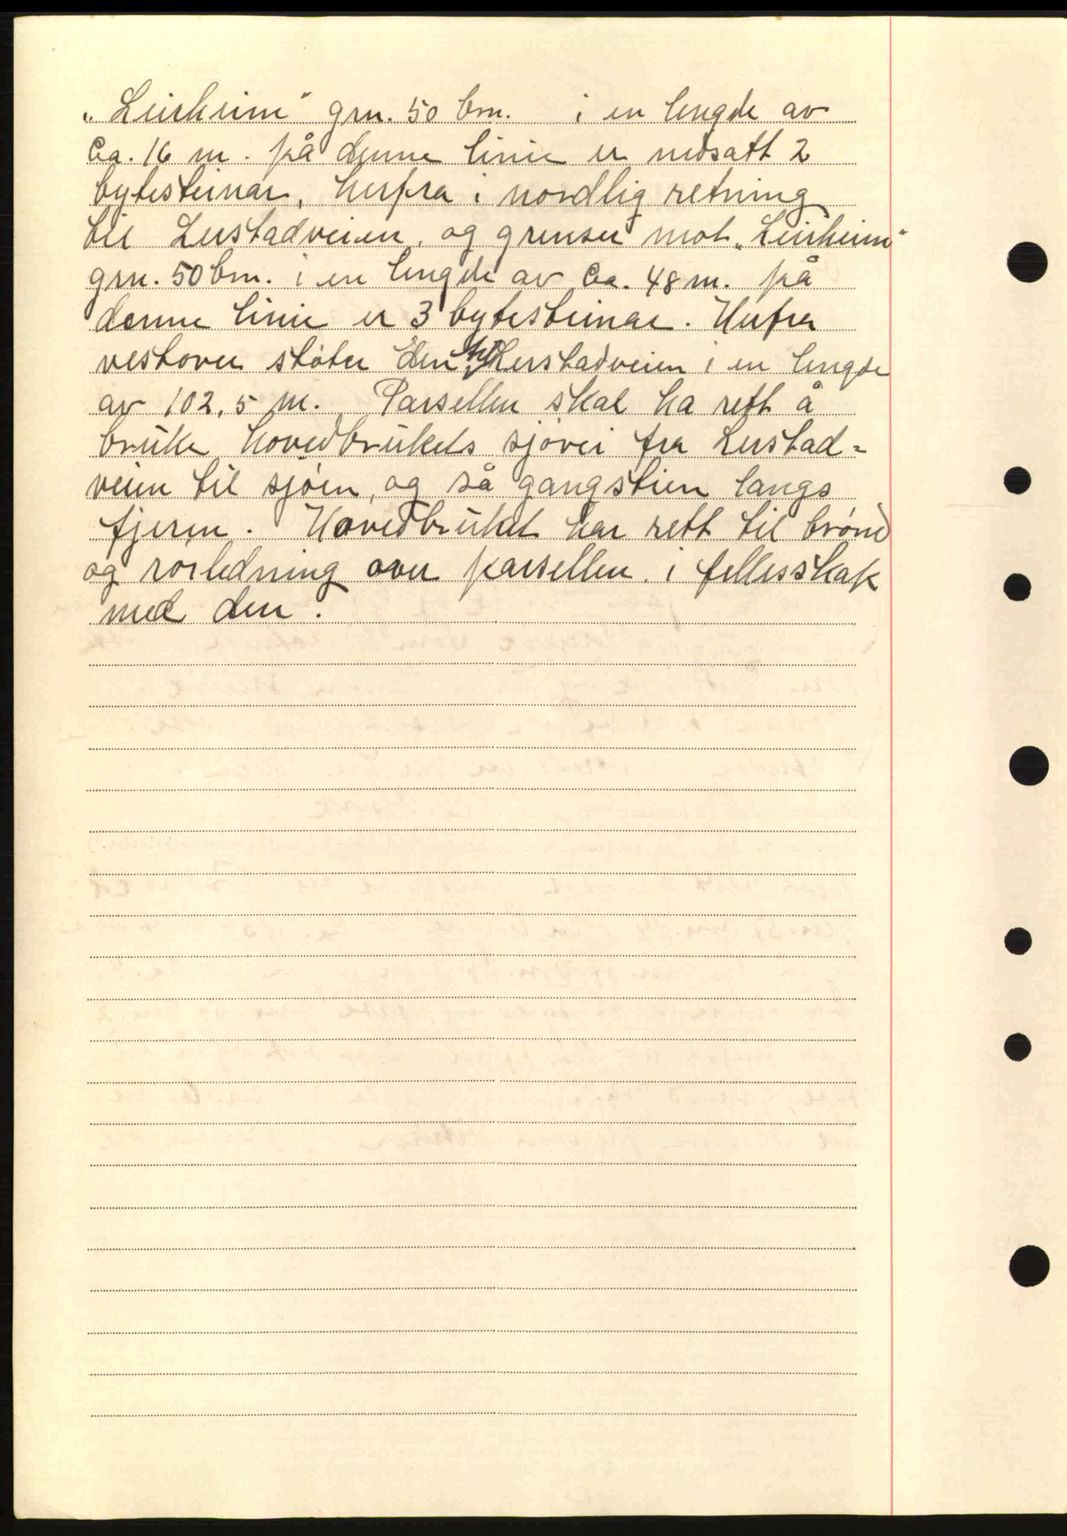 „Leirheim" grn. 50 brn. i en lengde av
Ca. 16 m. på denne linie er nedsatt 2
bytesteinar, herfra i nordlig retning
til Lerstadveien, og grenser mot „Leirheim"
grn. 50 brn. i en lengde av Ca. 48 m. på
denne linie er 3 bytesteinar. Herfra
vestover støter den til Lerstadveien i en lengde
av 102,5 m. Parsellen skal ha rett å
bruke hovedbrukets sjøvei fra Lerstad-
veien til sjøen, og så gangstien langs
fjæren. Hovedbruket har rett til brønd
og rørledning over parsellen i fellesskap
med den.